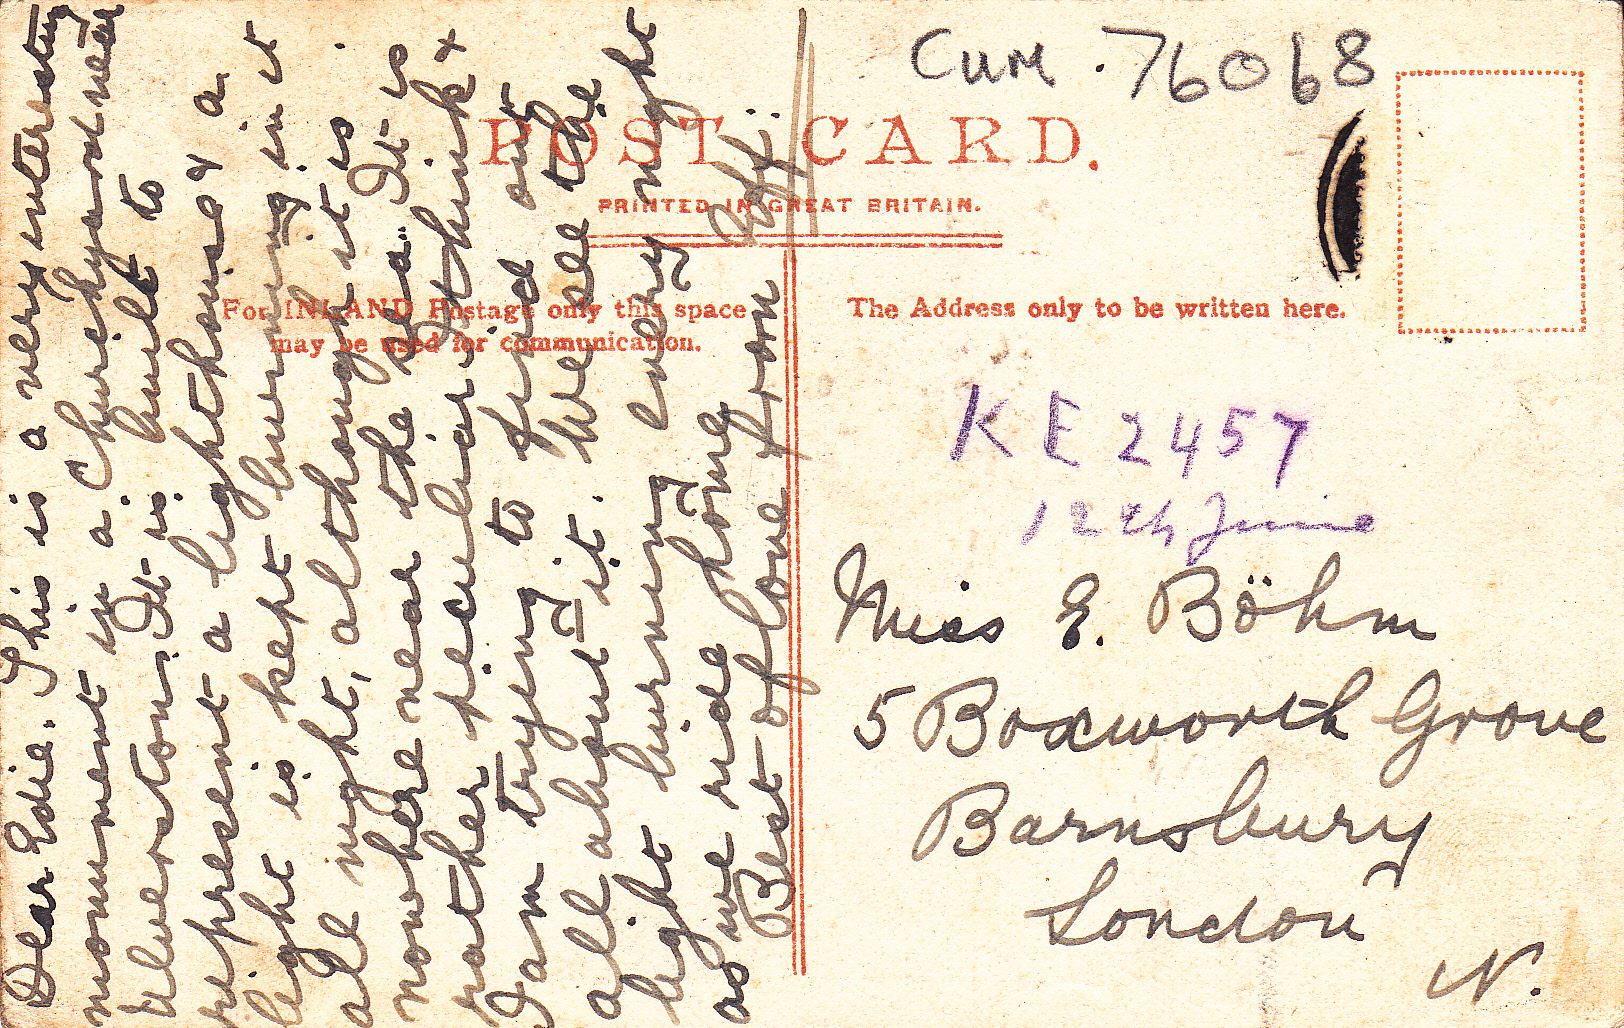 Cum. 76068
POST CARD.
PRINTED IN GREAT BRITAIN.
For INLAND Postage only this space
may be used for communication.
The Address only to be written here.
KE 2457
12th June
Miss E. Böhm
5 Boxworth Grove
Barnsbury
London
N.
Dear Edie. This is a very interesting
monument in a Churchyard near
Ulverston. It is built to
represent a lighthouse & a
light is kept burning in it
all night, although it is
nowhere near the sea. It is
rather peculiar I think &
I am trying to find out
all about it. We see the
light burning every night
as we ride home
Best of love from Off.